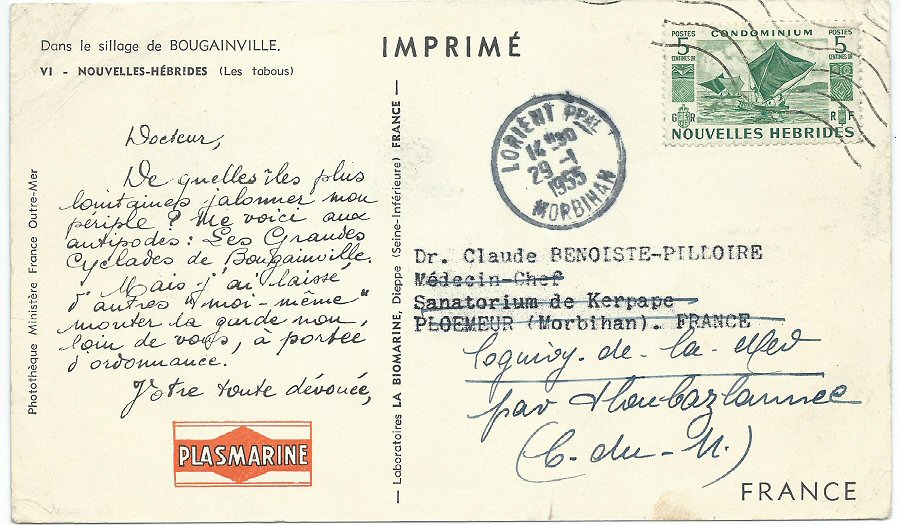 Dans le sillage de BOUGAINVILLE.
VI - NOUVELLES-HÉBRIDES (Les tabous)
Docteur,
De quelles îles plus
lointaines jalonner mon
périple ? Me voici aux
antipodes : Les Grandes
Cyclades de Bougainville.
Mais j'ai laissé
d'autres "moi-même"
monter la garde non
loin de vous, à portée
d'ordonnance.
Votre toute dévouée,
PLASMARINE
Photothèque Ministère France Outre-Mer
— Laboratoires LA BIOMARINE, Dieppe (Seine-Inférieure) FRANCE —
IMPRIMÉ
LORIENT PPAL
14 H30
29 -1
1955
MORBIHAN
POSTES CONDOMINIUM POSTES
5 5
CENTIMES OR CENTIMES OR
G R R F
NOUVELLES HEBRIDES
Dr. Claude BENOISTE-PILLOIRE
Médecin-Chef
Sanatorium de Kerpape
PLOEMEUR (Morbihan). FRANCE
de-la-
par
(C.-du-N.)
FRANCE